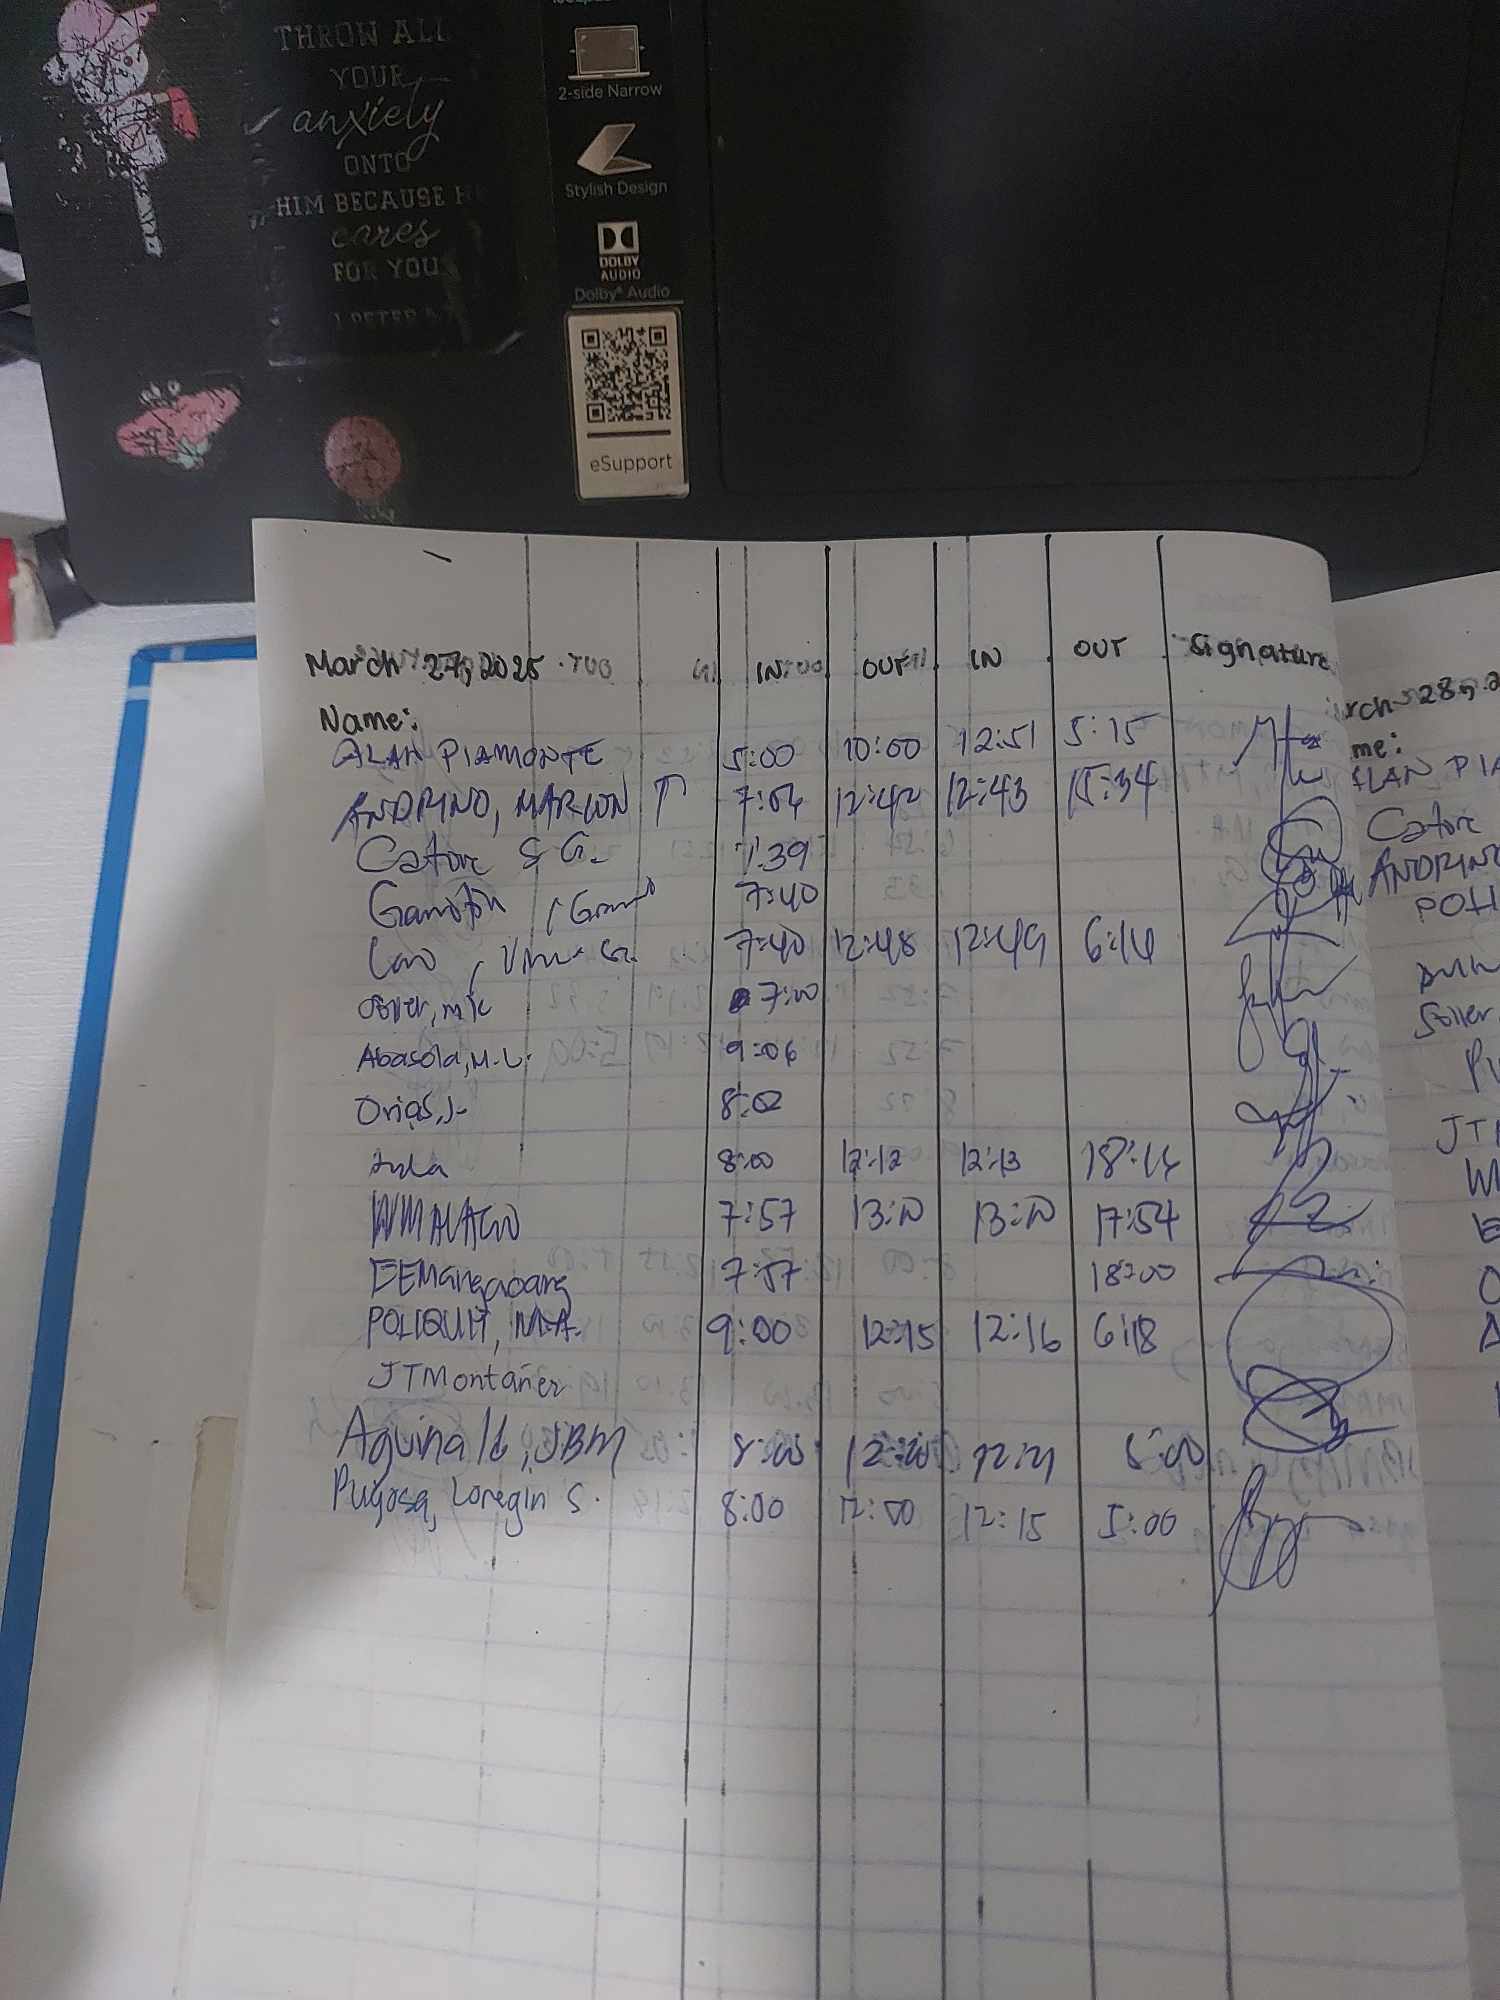 THROW ALL
YOUR
anxiety
ONTO
HIM BECAUSE H
cares
FOR YOU
1 PETER 5
2-side Narrow
Stylish Design
DOLBY
AUDIO
Dolby® Audio
eSupport
March 27, 2025 IN OUT IN OUT Signature
Name:
ALAN PIAMONTE 5:00 10:00 12:51 5:15
ANDRINO, MARLON 7:04 12:42 12:43 15:34
Catore S G. 7:39
7:40
7:40 12:48 12:49 6:14
7:00
Abasola, M.L. 9:06
Orias, J- 8:02
8:00 12:12 12:13 18:14
7:57 17:54
7:57 18:00
POLIQUIT, M.A. 9:00 12:15 12:16 6:18
JTMontañer
Aguinald, JBM 8:00 12:20 12:21 5:00
Pugosa, Loregin S. 8:00 12:00 12:15 5:00
rch 28, 2
me:
ALAN PIA
Catore
ANDRINO
POLI
JT